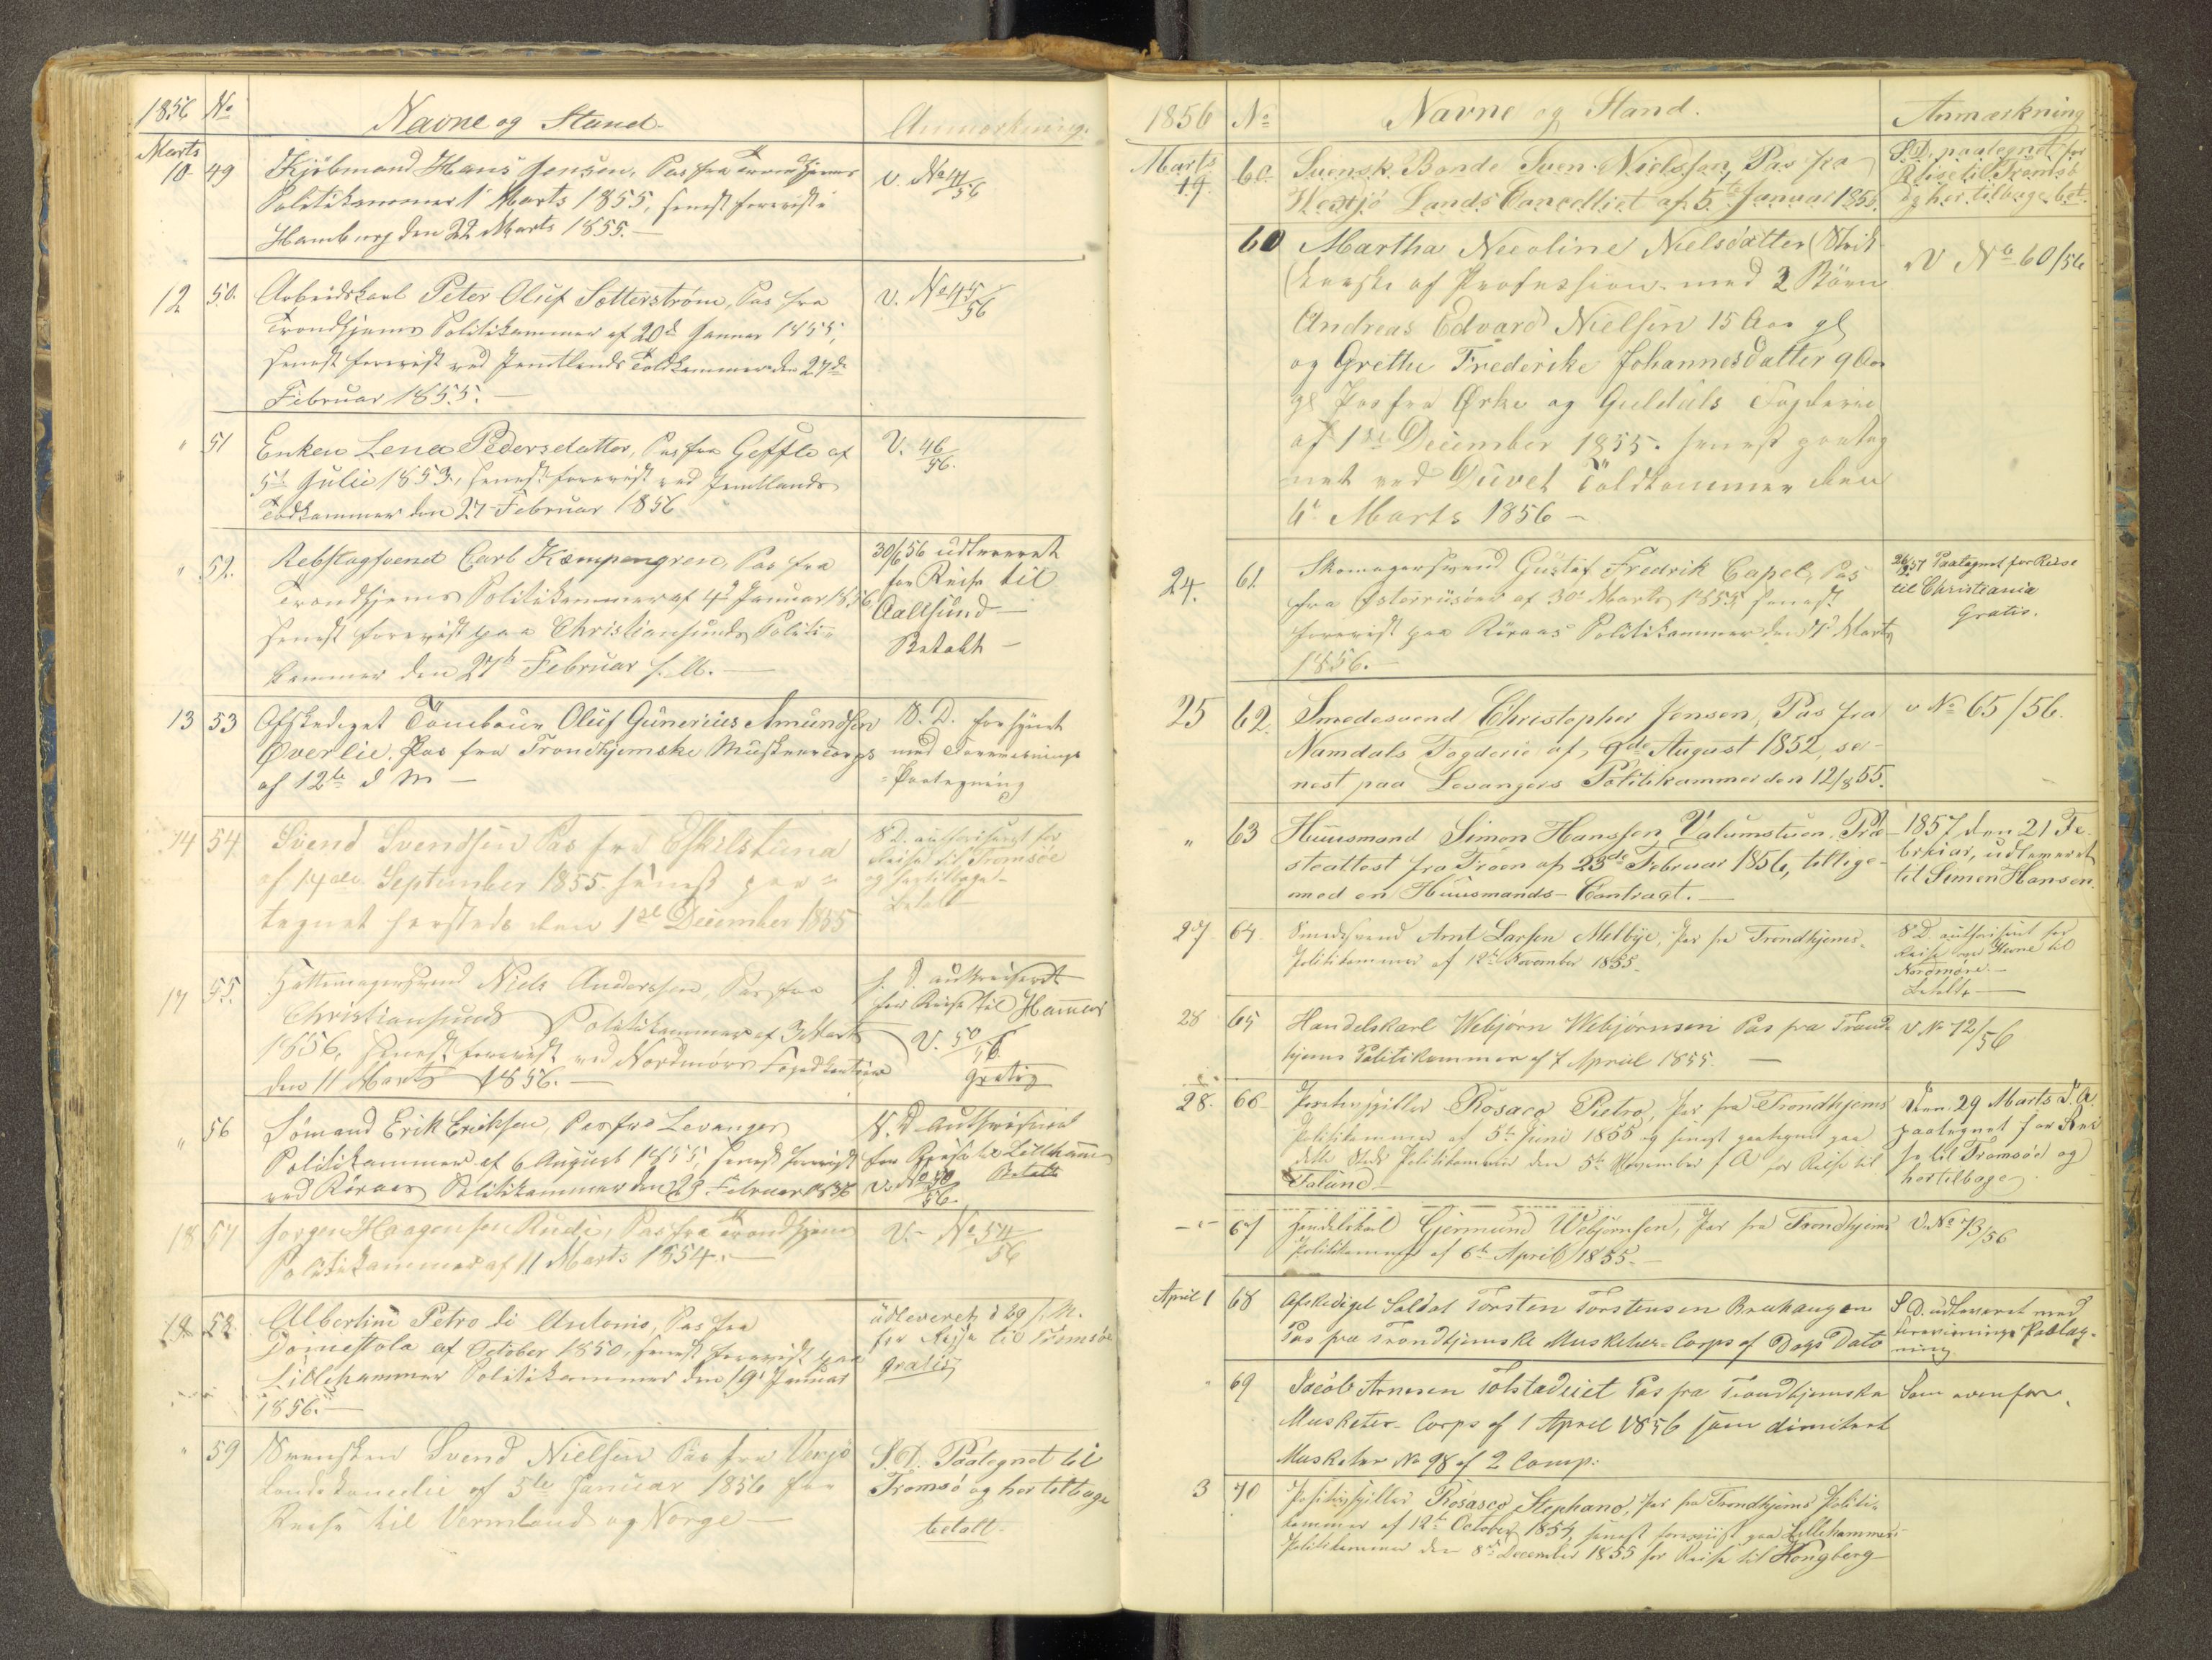 1856 No Navne og Stand. Anmerkning.
Marts
10 49 Kjöbmand Hans Jensen, Pas fra Trondhjems
Politikammer 1 Marts 1855, senest forevist i
Hamburg den 22 Marts 1855.
V. No 41/56
12 50 Arbeidskarl Peter Oluf Sætterström, Pas fra
Trondhjems Politikammer af 20de Januar 1855,
senest forevist ved Jemtlands Toldkammer den 27de
Februar 1855.
V. No 45/56
" 51 Enken Lena Pedersdatter, Pas fra Geffle af
5te Julie 1853, senest forevist ved Jemtlands
Toldkammer den 27 Februar 1856
V. 46/56.
" 52. Rebslagsvend Carl Kæmpengren, Pas fra
Trondhjems Politikammer af 4de Januar 1856,
senest forevist paa Christiansunds Politi-
kammer den 27de Februar s. A.
30/6 56 udleveret
for Reise til
Aallsund
Betalt
13 53 Afskediget Tambour Oluf Gunerius Amundsen
Øverlie. Pas fra Trondhjemske Musketeercorps
af 12te d M
S. D. forsynet
med Foreviisnings
-Paategning
14 54 Svend Svendsen Pas fra Eskilstuna
af 14de September 1855. senest paa-
tegnet hersteds den 1ste December 1855
S D. authoriseret for
Reise til Tromsöe
og hertilbage
betalt
17 55. Hattemagersvend Niels Anderssen, Pas fra
Christiansunds Politikammer af 3 Marts
1856, senest forevist ved Nordmörs Fogedkontoir
den 11 Marts 1856.
S. D. authoriseret
for Reise til Hamar
V. 50/56
gratis
" 56 Sömand Erik Eriksen, Pas fra Levanger
Politikammer af 6 August 1855, senest forevist
ved Röraas Politikammer den 29 Februar 1856
S. D. Authoriseret
for Reise til Lillehammer
V. No 50/56 Betalt
18 57 Jörgen Haagensen Rudi, Pas fra Trondhjems
Politikammer af 11 Marts 1854.
V. No 54/56
19 58. Albertini Petro di Antonio, Pas fra
Domestola af October 1850, senest forevist paa
Lillehammer Politikammer den 19de Januar
1856.
udleveret d 29 s. M.
for Reise til Tromsöe
gratis
" 59 Svensken Svend Nielsen Pas fra Vexjö
Landskancelie af 5te Januar 1856 for
Reise til Vermland og Norge
S. D. Paategnet til
Tromsö og her tilbage
betalt.
1856 No Navne og Stand. Anmærkning
Marts
19. 60. Svensk Bonde Sven Nielssen, Pas fra
Wexsjö Lands Cancelliet af 5te Januar 1856.
S. D. paategnet for
Reise til Tromsö
og her tilbage bet.
60 Martha Nicoline Nielsdatter
af Profession med 2 Börn
Andreas Edvard Nielsen 15 Aar gl
og Grethe Frederike Johannesdatter 9 Aar
gl Pas fra Ørke og Guldals Fogderie
af 1ste December 1855. senest paateg
net ved Duvet Toldkammer den
6te Marts 1856
V No 60/56
24. 61 Skomagersvend Gustaf Fredrik Capel, Pas
fra Österriisöer af 30te Marts 1855, senest
forevist paa Röraas Politikammer den Marts
1856.
Paategnet for Reise
til Christiania
Gratis.
25 62. Smedesvend Christopher Jensen, Pas fra
Namdals Fogderie af, 9de August 1852, se-
nest paa Levangers Politikammer den 12/8 55.
v No 65/56.
" 63 Huusmand Simon Hanssen Valumstuen. Præ-
steattest fra Froen af 23de Februar 1856, tillige-
med en Huusmands-Contragt.
1857 den 21 Fe-
bruar, udleveret
til Simon Hansen.
27 64. Smedesvend Arnt Larsen Melbye, Pas fra Trondhjems
Politikammer af 12te November 1855.
S D authoriseret for
Reise over Hevne til
Nordmöre.
betalt.
28 65 Handelskarl Webjørn Webjørnsen Pas fra Trond-
hjems Politikammer af 7 April 1855.
V No 72/56
28. 66 spiller Rosaco Pietro, Pas fra Trondhjems
Politikammer af 5te Juni 1855 og senest paategnet paa
dette Steds Politikammer den 5te November s A for Reise til
Falund
Den 29 Marts d. A.
paategnet for Rei
se til Tromsöe og
hertilbage
" 67 Handelskarl Gjermund Webjørnsen, Pas fra Trondhjems
Politikammer af 6te April 1855.
V. No 73/56
April 1 68 Afskediget Soldat Torsten Torstensen Bruhaugen
Pas fra Trondhjemske Musketeer-Corps af Dags Dato
S D. udleveret med
Foreviisnings Paateg-
ning
" 69 Jacob Arnesen Tolstadeiet Pas fra Trondhjemske
Musketer-Corps af 1 April 1856 som dimitert
Musketer No 98 af 2 Comp:
Som ovenfor
3 70 Positivspiller Rosasco Stephano, Pas fra Trondhjems Politi-
kammer af 12te October 1854, senest foreviist paa Lillehammer
Politikammer den 8de December 1855 for Reise til Kongberg